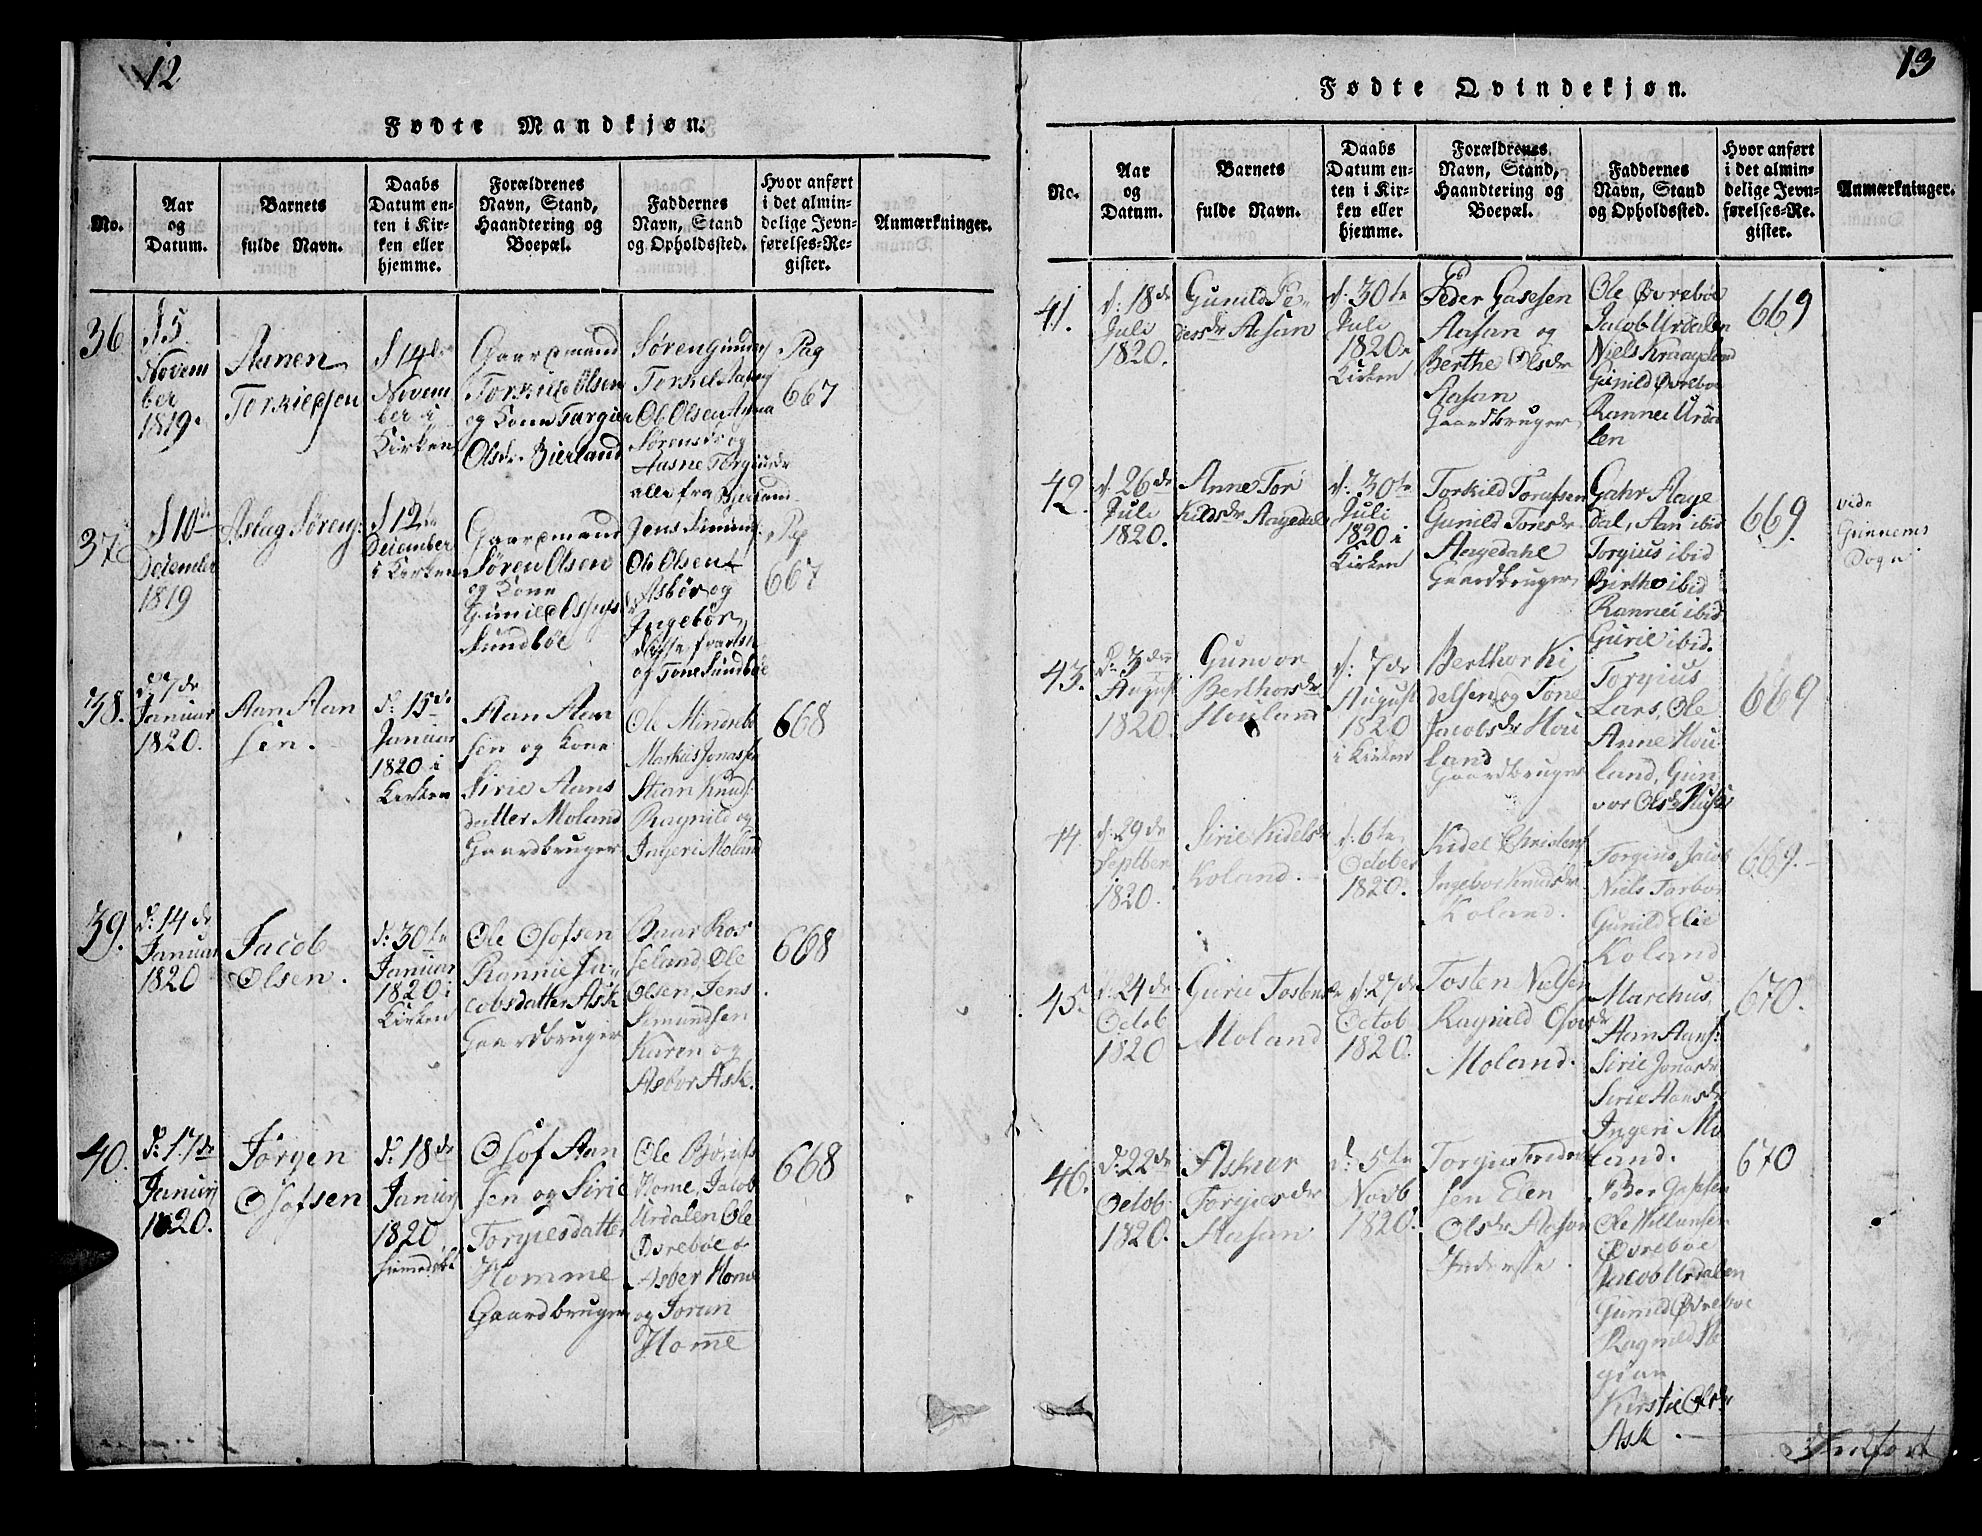 12
Fødte Mandkjøn.
No.
Aar
og
Datum.
Barnets
fulde Navn.
Daabs
Datum en-
ten i Kir-
ken eller
hjemme.
Forældrenes
Navn, Stand,
Haandtering og
Boepæl.
Faddernes
Navn, Stand
og Opholdssted.
Hvor anført
i det almin-
delige Jevn-
førelses-Re-
gister.
Anmærkninger.
36
Novem
ber
1819.
Asnen
Torkieldsen
14de
Novem
ber i
Kirken
Gaardmand
Torkild Olsen
og Kone Targier
Olsdr. Bierland
Søren
Torkel
Ole Olsen Anna
Sørensdr og
Aasne Torgiusdr
alle fra Bierland
Pag
667
37
10de
December
1819
Aslag Søreng:
12te
December
i Kirken
Gaardmand
Søren Olsen
og Kone
Gunild
Sundbøe
Jens Simund:
Ole Olsen
Asbør og
Ingebør
og Tone Sundbøe
Pag
667
38.
d: 7de
Januar
1820.
Aan Aan
sen.
d: 15de
Januar
1820 i
Kirken
Aan Aan
sen og Kone
Sirie Aans
datter Moland
Gaardbruger
Ole
Markus Jonass
Stian Knuds:
Ragnild og
Ingeri Moland
668
39.
d: 14de
Januar
1820
Jacob
Olsen.
d: 30te
Januar
1820 i
Kirken
Ole Olofsen
Rannie Ja-
cobsdatter Ask
Gaardbruger
Baar Ros
seland, Ole
Olsen, Jens
Simundsen
Karen og
Asbor Ask.
668
40.
d: 17de
Januarj
1820.
Jørgen
Olofsen
d: 18de
Januarj
1820
hiemedøbt
Olof Aan
sen og Sirie
Torgiesdatter
Homme
Gaardbruger
Ole
Home, Jacob
Urdalen Ole
Øvrebøe &
Asber Home
og Joran
Home
668
13
Fødte Qvindekjøn.
No.
Aar
og
Datum.
Barnets
fulde Navn.
Daabs
Datum en-
ten i Kir-
ken eller
hjemme.
Forældrenes
Navn, Stand,
Haandtering og
Boepæl.
Faddernes
Navn, Stand
og Opholdssted.
Hvor anført
i det almin-
delige Jevn-
førelses-Re-
gister.
Anmærkninger.
41.
d: 18de
Juli
1820.
Gunild Pe-
dersdr Aasan
d: 30te
Juli
1820 i
Kirken
Peder Gasesen
Aasan og
Berthe Olsdr
Aasan
Gaardbruger
Ole Øvrebøe
Jacob Urdalen
Niels Kraageland
Gunild Øvrebøe
Rannei Urda
len
669
42.
d: 26de
Juli
1820.
Anne Tor
kildsdr Aagedal
d: 30te
Juli
1820 i
Kirken
Torkild Torufsen
Gunild Toresdr
Aagedahl
Gaardbruger
Gahr Aage
dal, Aan ibid
Torgius ibid
Birthe ibid
Rannei ibid
Gurie ibid.
669.
vide
Gunnems
Dogn
43.
d: 3die
August
1820.
Gunvor
Berthorsdr
Houland
d: 7de
August
1820
i Kirken
Berthor Ki
delsen og Tone
Jacobsdr Hou
land
Gaardbruger
Torgius
Lars, Ole
Anne Hou
land, Gun
vor Olsdr
669
44.
d: 29de
Septber
1820.
Sirie Kidelsdr
Koland.
d: 6te
October
1820.
Kidel Christens
Ingebor Knudsdr
Koland.
Torgius, Jacob
Niels Torbor
Gunild Elie
Koland
669.
45.
d: 24de
Octob
1820
Gurie Tostensdr
Moland
d: 27de
Octob
1820.
Tosten Nielsen
Ragnild Olsdr
Moland.
Marchus,
Aan Aans:
Sirie Jonasdr
Sirie Aansdr
Ingeri Mo
land.
670.
46.
d: 22de
Octob
1820.
Asknar
Torgiesdr
Aasan
d: 5te
Novb
1820.
Torgius Fredrik
sen Elen
Olsdr Aasan
Inderste.
Peder Gasesen
Ole Willumsen
Øvrebøe
Jacob Urdalen
Gunild Øvrebøe
Ragnild
Kirstie Olsdr
Ask.
670
Indført